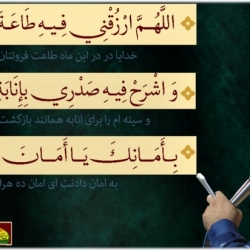 اللَّهُمَّ ارْزُقْنِي فِيهِ طَاعَةَ
خدایا در در این ماه طاعت فروتنان
وَ اشْرَحْ فِيهِ صَدْرِي بِإِنَابَةِ
و سینه ام را برای انابه همانند بازگشت
بِأَمَانِكَ يَا أَمَانَ
به امان دادنت ای امان ده هرا